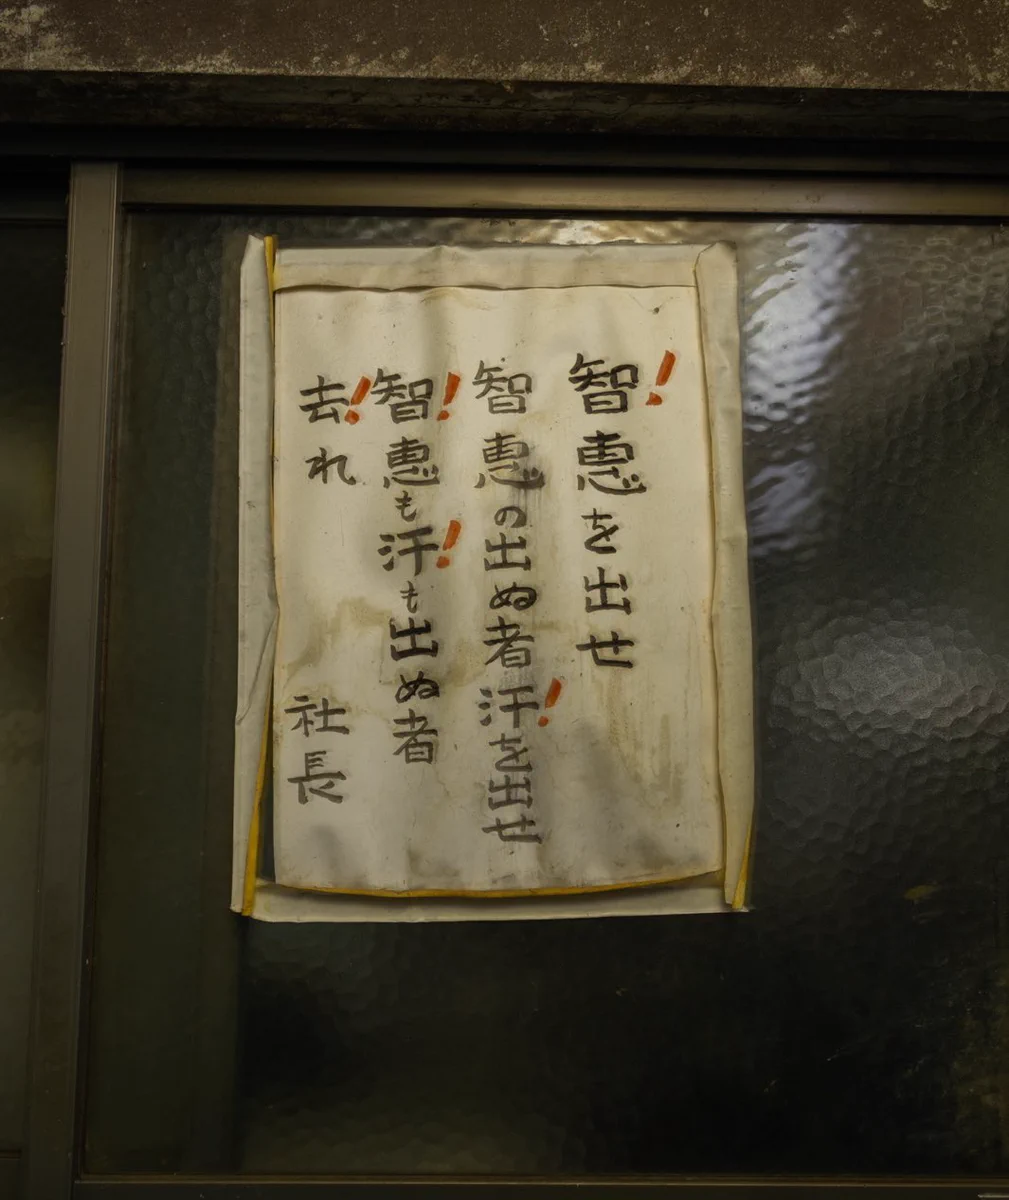 智恵を出せ
智恵の出ぬ者汗を出せ
智恵も汗も出ぬ者
去れ
社長